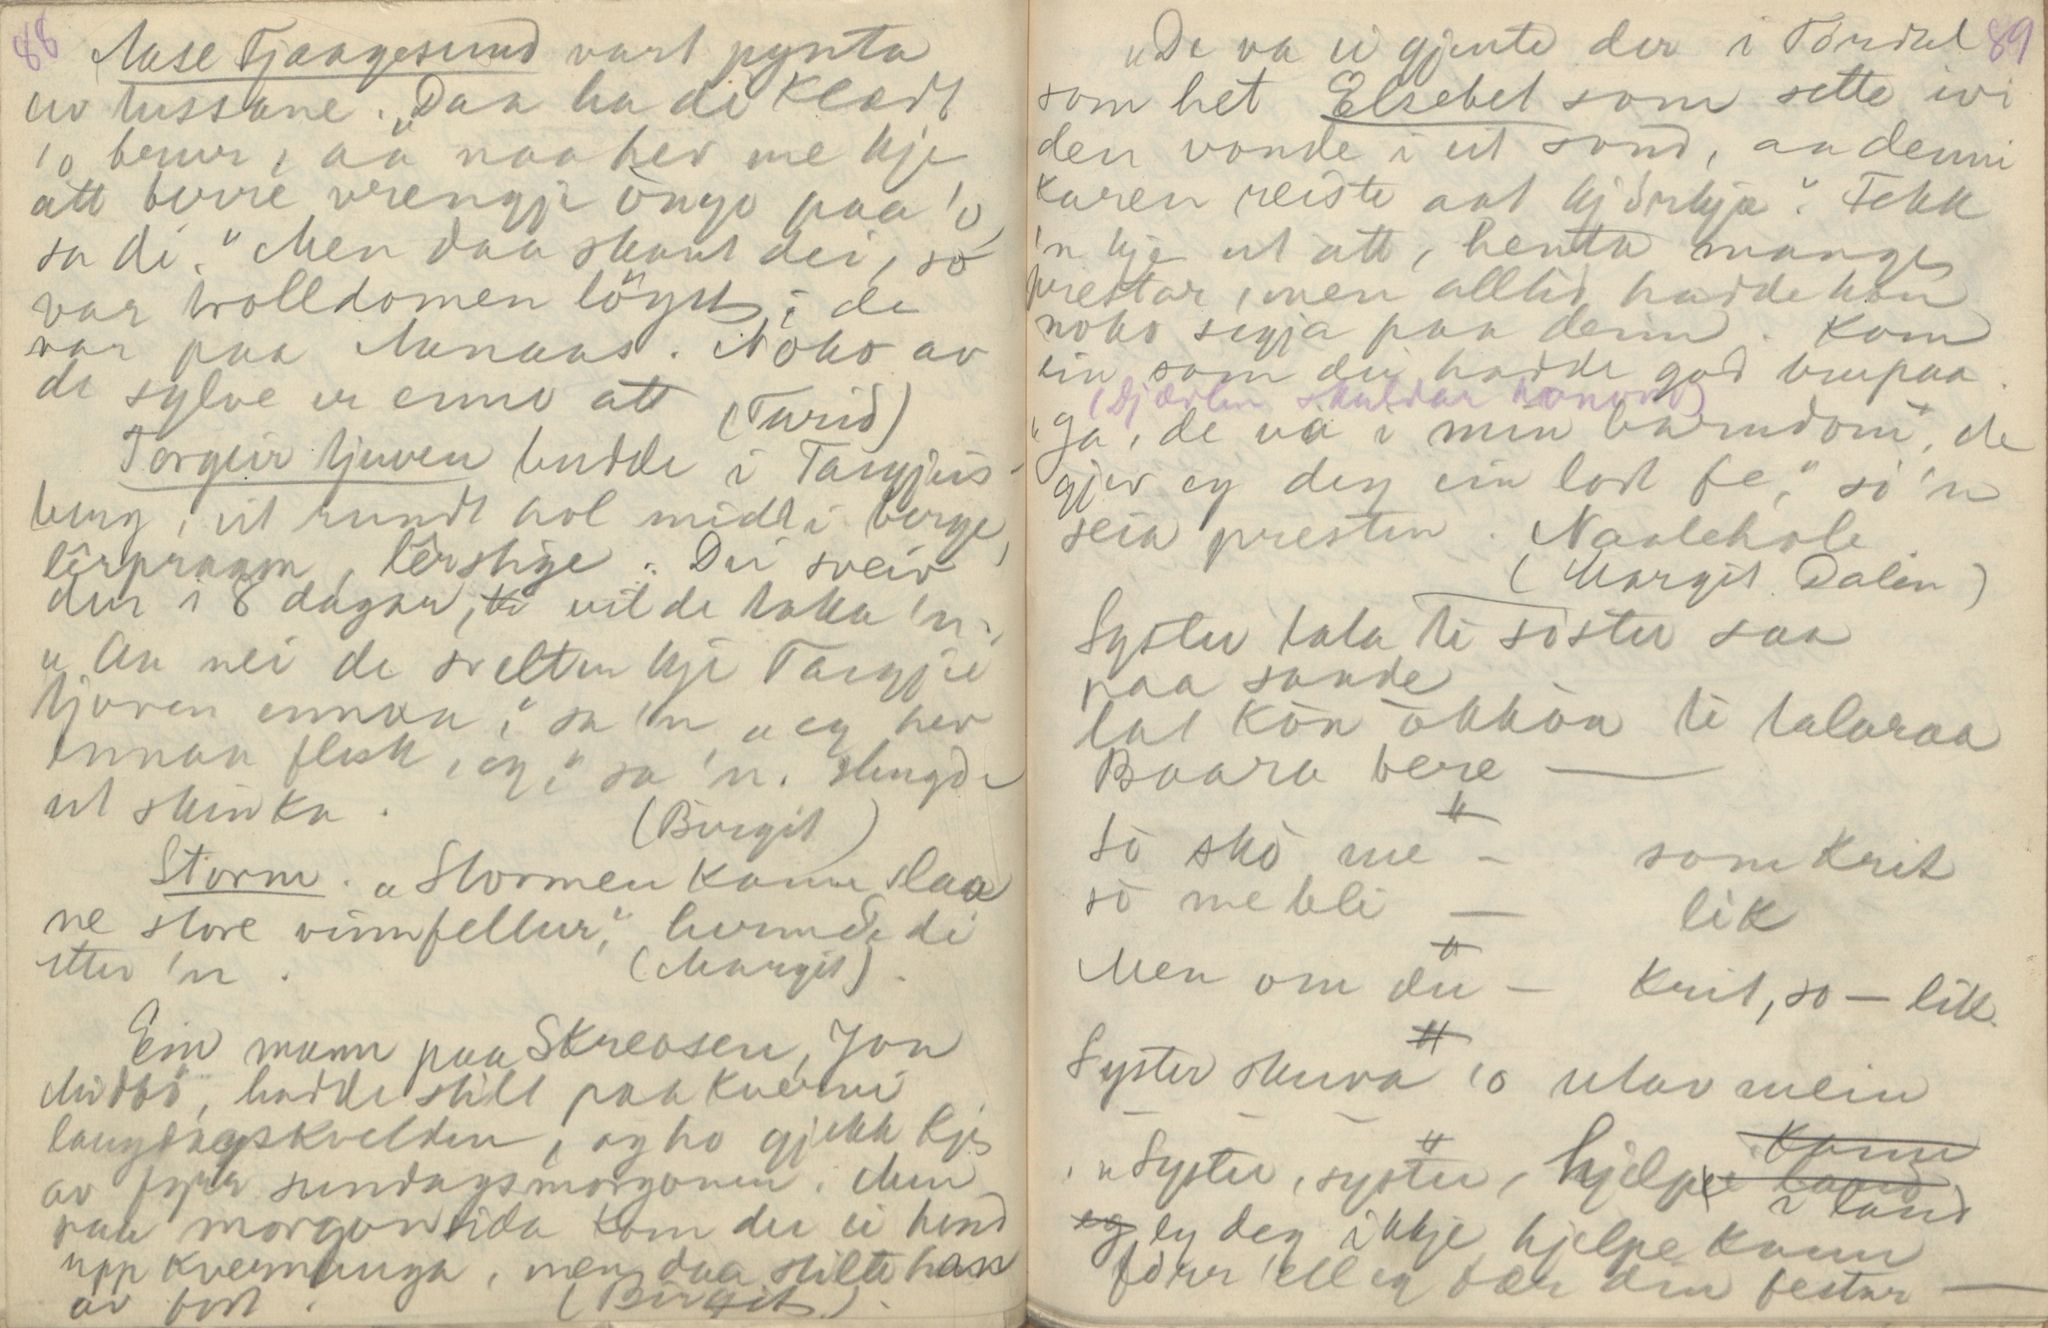 88
Aase Tjaagesund vart pynta
av tussane. „Daa ha di klædt
'o brur, aa naa hev me kje
att berre vrengje öugo paa 'o,
sa di." Men daa skaut dei, so
var trolldomen löyst; de
var paa Aanaas. Noko av
de sylve er enno att (Turid)
Torgeir tjuven budde i Targjeis-
berg, eit rundt hol midt i berge,
Dei sveiv
der i 8 dagar, vilde taka 'n.,
„Aa nei de svelter kje Targjei
tjoven ennaa," sa 'n „eg hev
ennaa flesk, eg," sa 'n. slengde
ut skinka.
(Birgit)
Storm. „Stormen kann slaa
ne store vinnfellur," hermde di
etter 'n. (Margit).
Ein mann paa Skreosen, Jon
Midbö, hadde stilt paa kverni
laugdagskvelden, og ho gjekk kje
av fyrr sundagsmorgonen. Men
paa morgonsida kom der ei hond
upp kvernauga, men daa stilte han
av fort. (Birgit).
89
„De va ei gjente der i Tördal
som het Elsebet som sette ivi
den vonde i eit sond, aa denni
karen reiste aat kjörkje". Fekk
'n kje ut att, henta mange
prestar, men alltid hadde han
noko segja paa deim. Kom
ein som dei hadde god tru paa.
(Djævlen skuldar honom)
„Ja, de va i min barndom, de
gjev eg deg ein lort fe," so 'n
seia presten. Naalehole.
(Margit Dalen)
Syster tala te söster saa
paa sande
lat kön ökkön te talaraa
Baara bere —
So sko me — som krit
so me bli — lik
Men om du — krit, so — lik.
Syster skuva 'o utav mein
„Syster, syster, hjelpe i land
eg deg ikkje hjelpe kann
förr ell eg fær din festar —